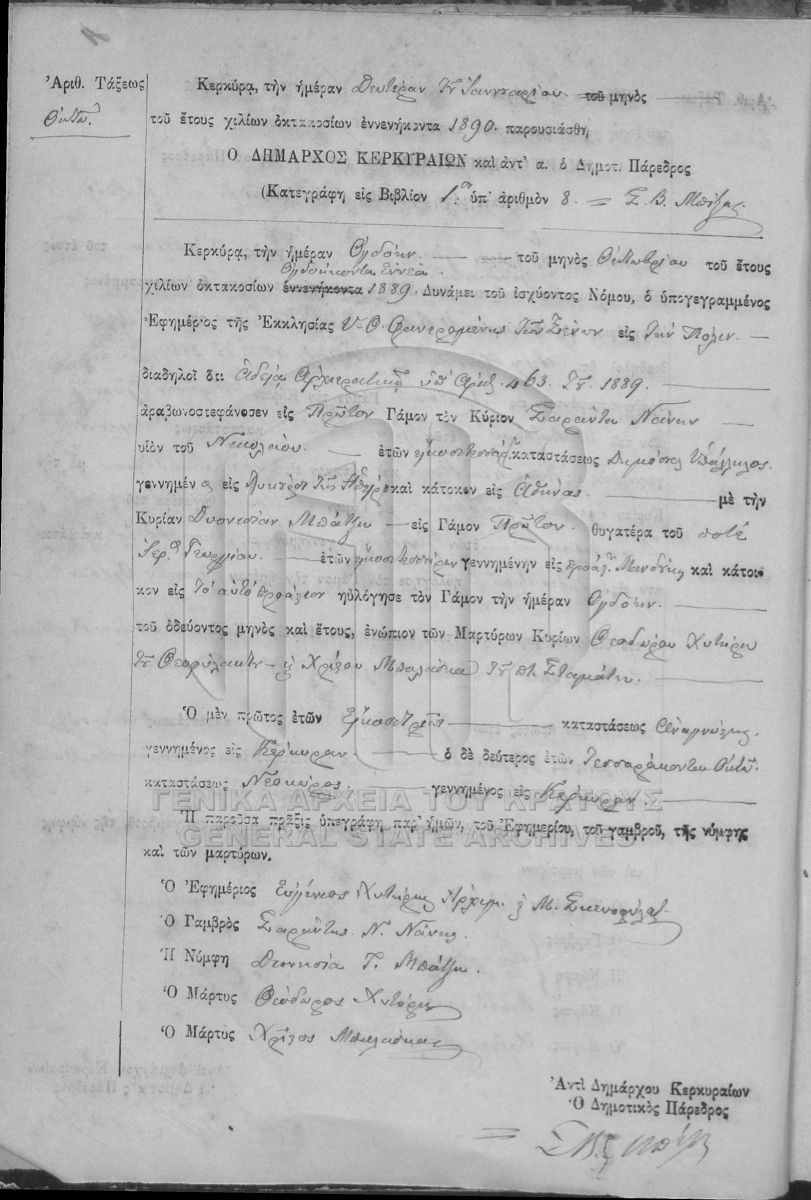 Ἀριθ. Τάξεως
Ὀκτώ
Κερκύρᾳ, τὴν ἡμέραν Δευτέραν τοῦ Ἰαννουαρίου τοῦ μηνὸς
τοῦ ἔτους χιλίων ὀκτακοσίων ἐννενήκοντα 1890. παρουσιάσθη
Ο ΔΗΜΑΡΧΟΣ ΚΕΡΚΥΡΑΙΩΝ καὶ ἀντ' α. ὁ Δημοτ. Πάρεδρος
(Κατεγράφη εἰς Βιβλίον 1ον ὑπ' ἀριθμὸν 8.
Κερκύρᾳ, τὴν ἡμέραν Ὀγδόην τοῦ μηνὸς Ὀκτωβρίου τοῦ ἔτους
Ὀγδοήκοντα ἐννέα
χιλίων ὀκτακοσίων ἐννενήκοντα 1889. Δυνάμει τοῦ ἰσχύοντος Νόμου, ὁ ὑπογεγραμμένος
Ἐφημέριος τῆς Ἐκκλησίας Υ. Θ. Φανερωμένης τῶν Ξένων εἰς τὴν Πόλιν
διαδηλοῖ ὅτι Ἀδείᾳ Ἀρχιερατικῇ ὑπ' Ἀριθ. 463. τοῦ 1889.
ἀραβωνοστεφάνοσεν εἰς Πρῶτον Γάμον τὸν Κύριον Σαράντη Νάνην
υἱὸν τοῦ Νικολάου. ἐτῶν εἰκοσιτεσσάρων καταστάσεως Δημόσιος Ὑπάλληλος.
γεννημένον εἰς τῆς Ἠπείρου καὶ κάτοικον εἰς Ἀθήνας. μὲ τὴν
Κυρίαν Διονυσίαν Μπάτζη εἰς Γάμον Πρῶτον. θυγατέρα τοῦ ποτὲ
Γεωργίου. ἐτῶν εἰκοσιτεσσάρων γεννημένην εἰς προάστ. Μανδούκι καὶ κάτοι-
κον εἰς τὸ αὐτὸ προάστιον ηὐλόγησε τὸν Γάμον τὴν ἡμέραν Ὀγδόην.
τοῦ ὁδεύοντος μηνὸς καὶ ἔτους, ἐνώπιον τῶν Μαρτύρων Κυρίων Θεοδώρου Χυτήρη
τοῦ Θεοφυλάκτου Χρίσου Μπαλάσκα τοῦ πτ. Σταμάτη.
Ὁ μὲν πρῶτος ἐτῶν Εἰκοσιτριῶν καταστάσεως
γεννημένος εἰς Κέρκυραν ὁ δὲ δεύτερος ἐτῶν Τεσσαράκοντα Ὀκτώ
καταστάσεως γεννημένος εἰς Κέρκυραν
Ἡ παροῦσα πρᾶξις ὑπεγράφη παρ' ἡμῶν, τοῦ Ἐφημερίου, τοῦ γαμβροῦ, τῆς νύμφης
καὶ τῶν μαρτύρων.
Ὁ Ἐφημέριος Χυτήρης
Ὁ Γαμβρὸς Σαράντης Ν. Νάνης
Ἡ Νύμφη Διονησία Γ. Μπάτζη.
Ὁ Μάρτυς Θεόδωρος Χυτήρης
Ὁ Μάρτυς Χρίσος Μπαλάσκας
Ἀντὶ Δημάρχου Κερκυραίων
Ὁ Δημοτικὸς Πάρεδρος
ΓΕΝΙΚΑ ΑΡΧΕΙΑ ΤΟΥ ΚΡΑΤΟΥΣ
GENERAL STATE ARCHIVES